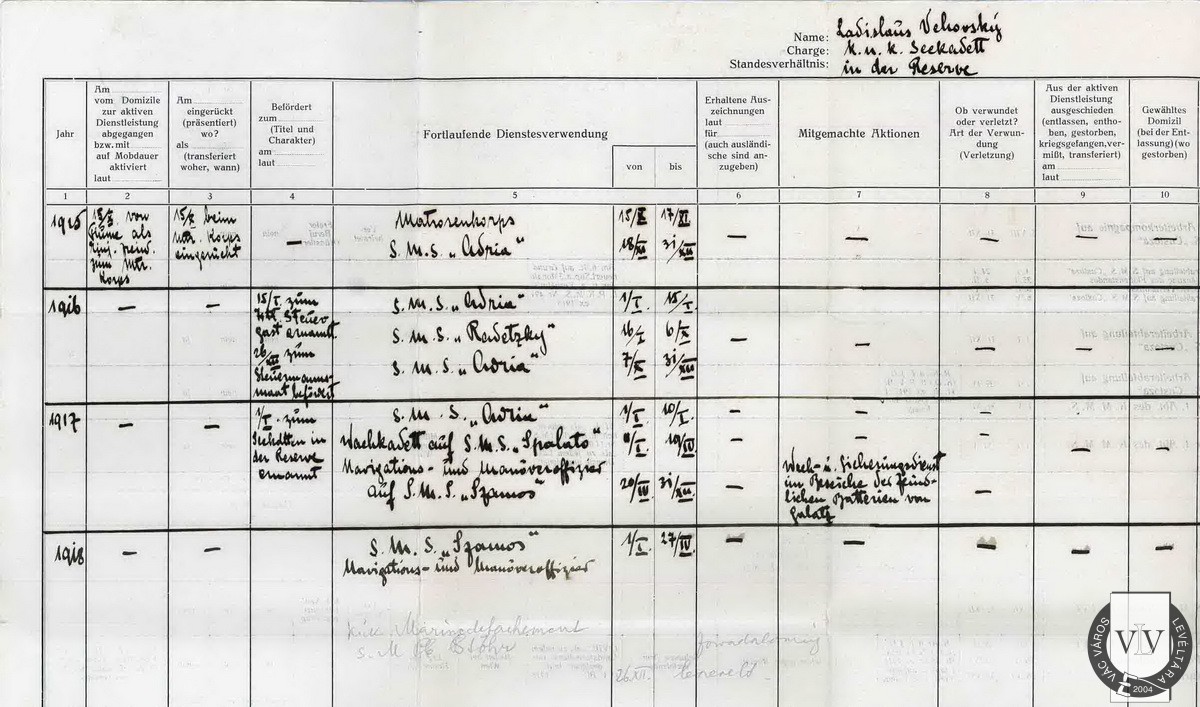 Name: Ladislaus Vehovský
Charge: k. u. k. Seekadett
Standesverhältnis: in der Reserve
Jahr
Am
vom Domizile
zur aktiven
Dienstleistung
abgegangen
bzw. mit
auf Mobdauer
aktiviert
laut
Am
eingerückt
(präsentiert)
wo?
als
(transferiert
woher, wann)
Befördert
zum
(Titel und
Charakter)
am
laut
Fortlaufende Dienstesverwendung
von
bis
Erhaltene Aus-
zeichnungen
laut
für
(auch ausländi-
sche sind an-
zugeben)
Mitgemachte Aktionen
Ob verwundet
oder verletzt?
Art der Verwun-
dung
(Verletzung)
Aus der aktiven
Dienstleistung
ausgeschieden
(entlassen, entho-
ben, gestorben,
kriegsgefangen, ver-
mißt, transferiert)
am
laut
Gewähltes
Domizil
(bei der Ent-
lassung) (wo
gestorben)
1 2 3 4 5 6 7 8 9 10
1915
15/X. von
Fiume als
Einj. freiw.
zum Mtr.
Korps
15/X. beim
Mtr. Korps
eingerückt
—
Matrosenkorps 15/X 17/XI
S. M. S. „Adria“ 18/XI 31/XII
— — — — —
1916
— —
15/I. zum
tit. Steuer
gast ernannt.
26/XII zum
Steuermanns-
maat befördert
S. M. S. „Adria“ 1/I. 15/I.
S. M. S. „Radetzky“ 16/I 6/X
S. M. S. „Adria“ 7/X 31/XII
— — — — —
1917
— —
1/I. zum
Seekdtten in
der Reserve
ernannt
S. M. S. „Adria“ 1/I 10/I.
— — —
Wachkadett auf S. M. S. „Spalato“ 11/I. 19/IV
— — — — —
Navigations- und Manöveroffizier
auf S. M. S. „Szamos“ 20/IV 31/XII
—
Wach- u. Sicherungsdienst
im Bereiche der feind-
lichen Batterien von
Galatz
—
1918
— —
S. M. S. „Szamos“ 1/I. 27/IV.
— — — — —
Navigations- und Manöveroffizier
k.u.k. Marinedetachement
S. M. Blohr
forradalomig
26/XII. leszerelő
VÁC VÁROS LEVÉLTÁRA
VLV
2004